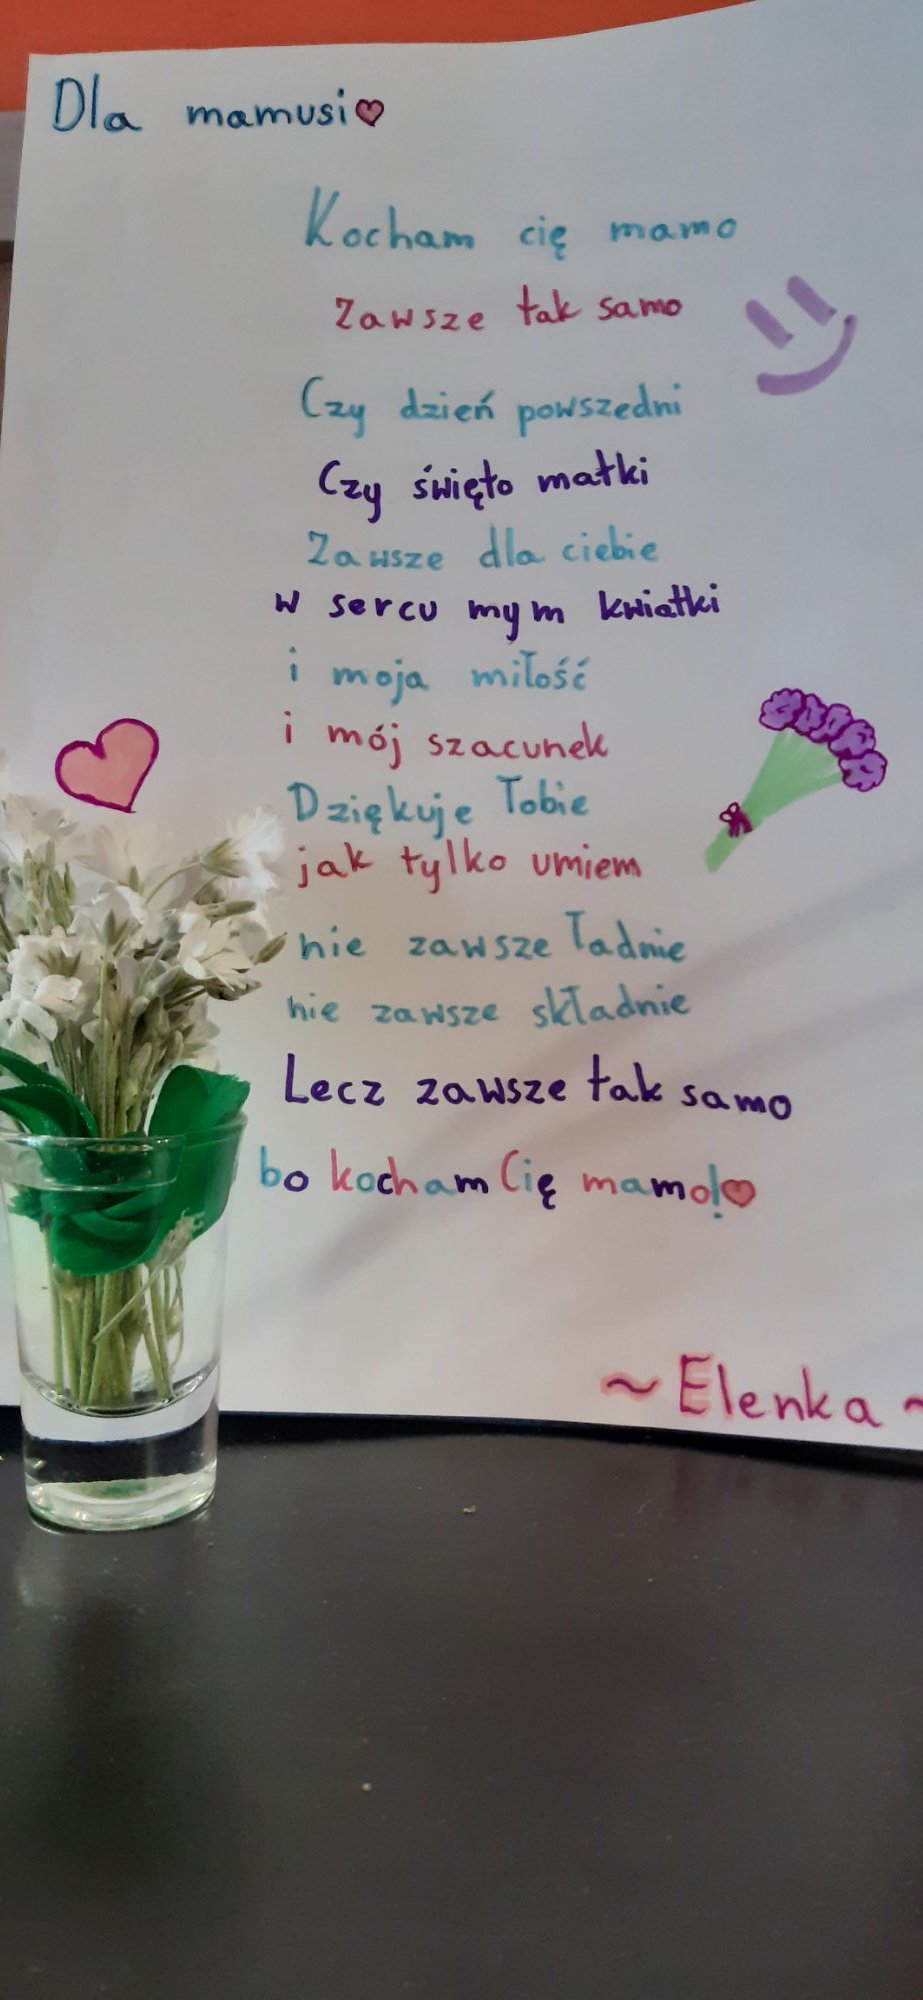 Dla mamusi
Kocham cię mamo
Zawsze tak samo
Czy dzień powszedni
Czy święto matki
Zawsze dla ciebie
w sercu mym kwiatki
i moja miłość
i mój szacunek
Dziękuje Tobie
jak tylko umiem
nie zawsze ładnie
nie zawsze składnie
Lecz zawsze tak samo
bo kocham Cię mamo!
~Elenka~